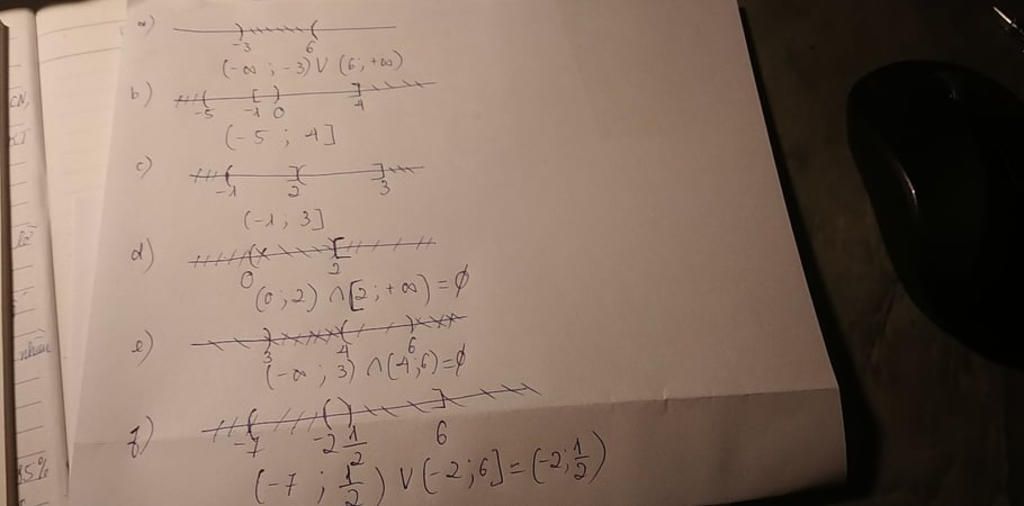 a)
-3 6
(-∞ ; -3) ∪ (6 ; +∞)
b)
-5 -1 0 4
(-5 ; 4]
c)
-1 2 3
(-1 ; 3]
d)
0 2
(0 ; 2) ∩ [2 ; +∞) = ∅
e)
3 4 6
(-∞ ; 3) ∩ (4 ; 6) = ∅
f)
-7 -2 1/2 6
(-7 ; 1/2) ∪ (-2 ; 6] = (-2 ; 1/2)
CN,
nhau
35%